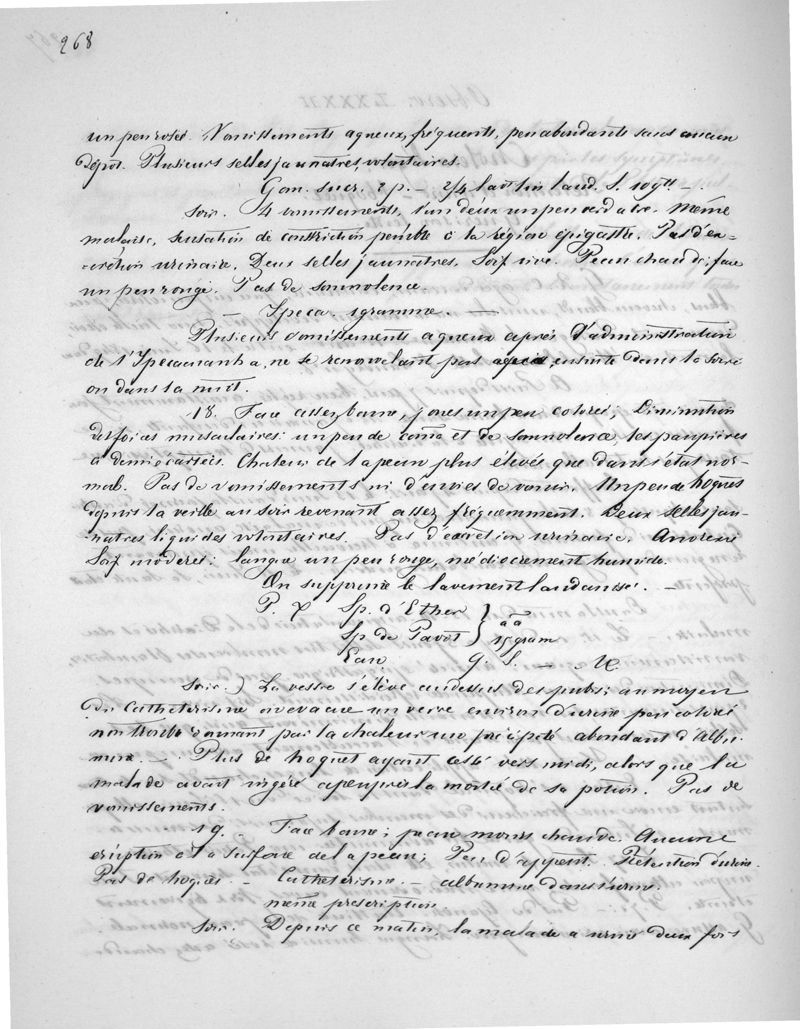 268
un peu rosée. Vomissements aqueux, fréquents, peu abondants sans aucun
dépot. Plusieurs selles jaunatres, volontaires.
Gom. sucr. 2 p. — 2/4 lavt lin laud. S. 10 gtts —
Soir. 4 vomissements, l'un deux un peu verdatre. Même
malaise, sensation de constriction pénible à la région épigastre. Pas d'ex-
crétion urinaire. Deux selles jaunatres. Soif vive. Peau chaude; face
un peu rouge. Pas de somnolence.
— Ipeca. 1 gramme. —
Plusieurs vomissements aqueux après l'administration
de l'Ipecacuanha, ne se renouvelant pas ensuite dans la soiré
ou dans la nuit.
18. Face assez bonne, joues un peu colorées; Diminution
des forces musculaires: un peu de coma et de somnolence, les paupières
à demi écartées. Chaleur de la peau plus élevée que dans l'état nor-
mal. Pas de vomissements ni d'envies de vomir. Un peu de hoquet
depuis la veille au soir revenant assez fréquemment. Deux selles jau-
natres liquides volontaires. Pas d'excrétion urinaire. Anorexie
Soif modérée: langue un peu rouge, médiocrement humide.
On supprime le lavement laudanisé. —
P. Sp. d'Ether } aa
Sp de Pavot } 15 gram
Eau Q. S. — M
Soir.) La vessie s'élève audessus des pubis; au moyen
du Cathétérisme on évacue un verre environ d'urine peu colorée
non trouble donnant par la chaleur un précipité abondant d'Albu-
mine. — Plus de hoquet ayant cessé vers midi, alors que la
malade avait ingéré apeuprès la moitié de sa potion. Pas de
vomissements.
19. — Face bonne; peau moins chaude. Aucune
éruption à la surface de la peau; Peu d'appétit. Rétention d'urine.
Pas de hoquet — Cathétérisme. — albumine dans l'urine.
même prescription
Soir. Depuis ce matin, la malade a uriné deux fois